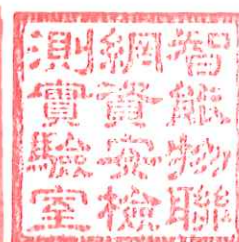 智能物聯
網資安檢
測實驗室